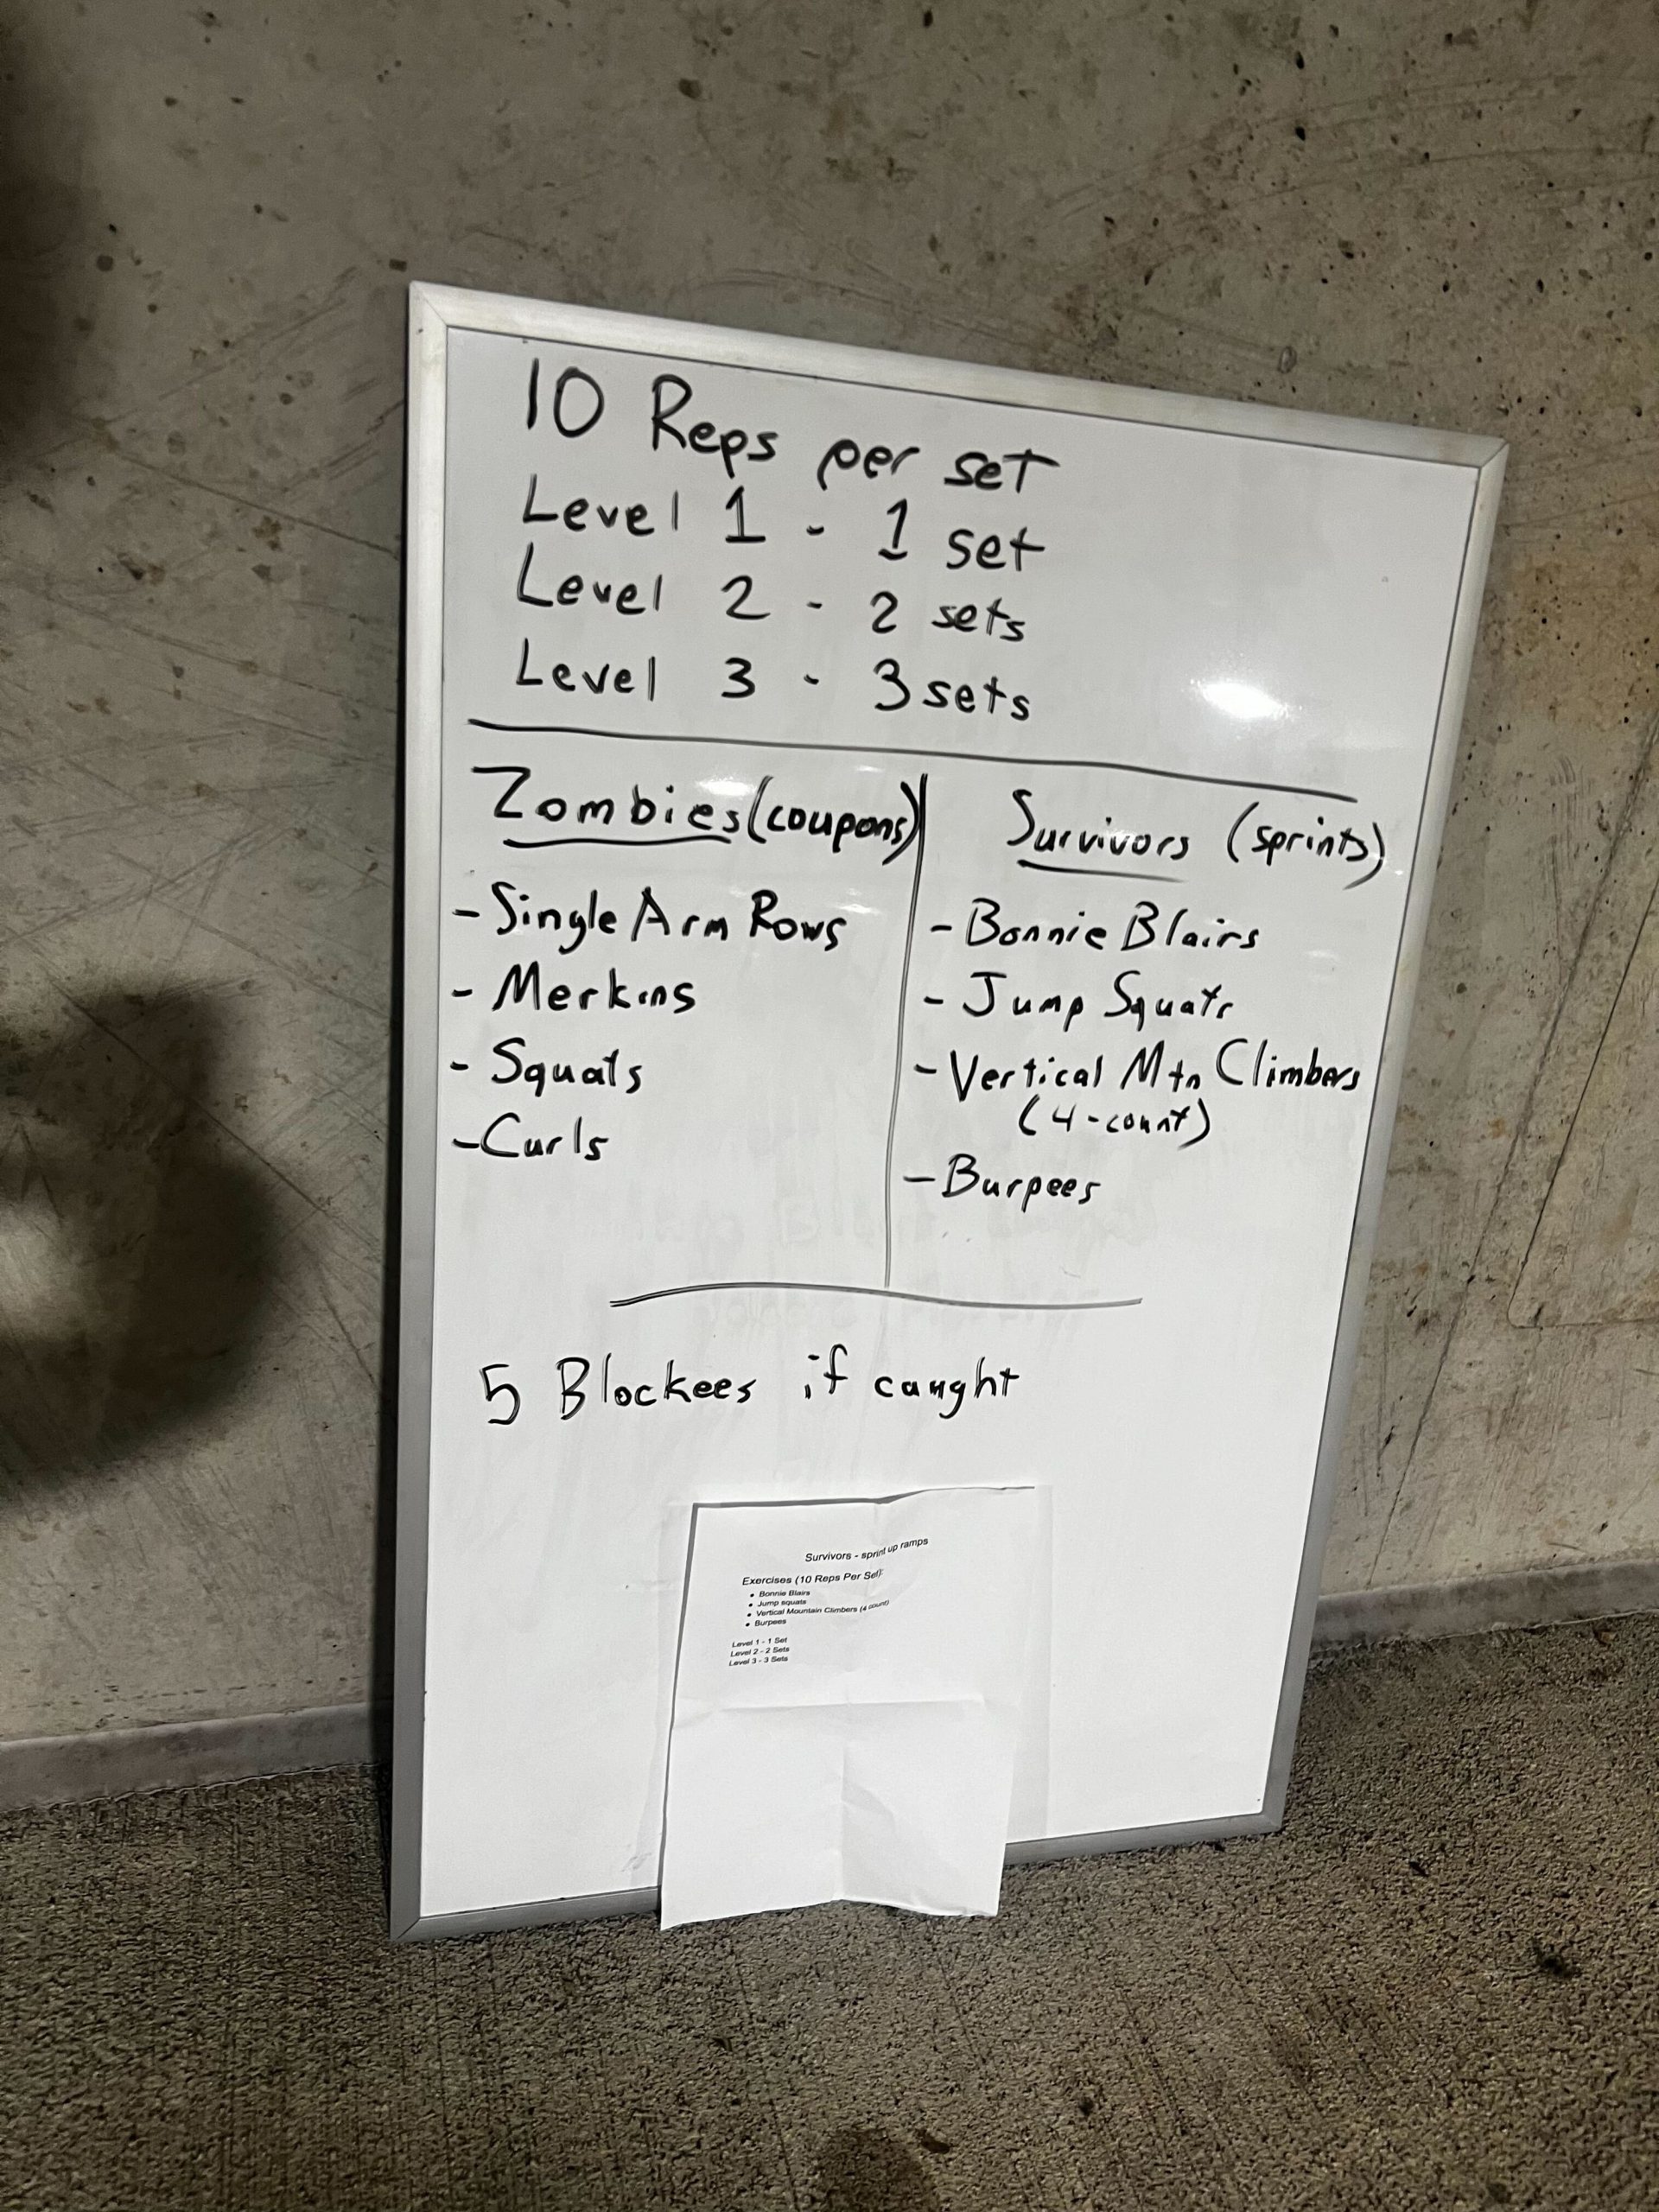 10 Reps per set
Level 1 - 1 set
Level 2 - 2 sets
Level 3 - 3 sets
Zombies (coupons)
- Single Arm Rows
- Merkins
- Squats
- Curls
Survivors (sprints)
- Bonnie Blairs
- Jump Squats
- Vertical Mtn Climbers
(4-count)
- Burpees
5 Blockees if caught
Survivors - sprint up ramps
Exercises (10 Reps Per Set):
• Bonnie Blairs
• Jump squats
• Vertical Mountain Climbers (4 count)
• Burpees
Level 1 - 1 Set
Level 2 - 2 Sets
Level 3 - 3 Sets